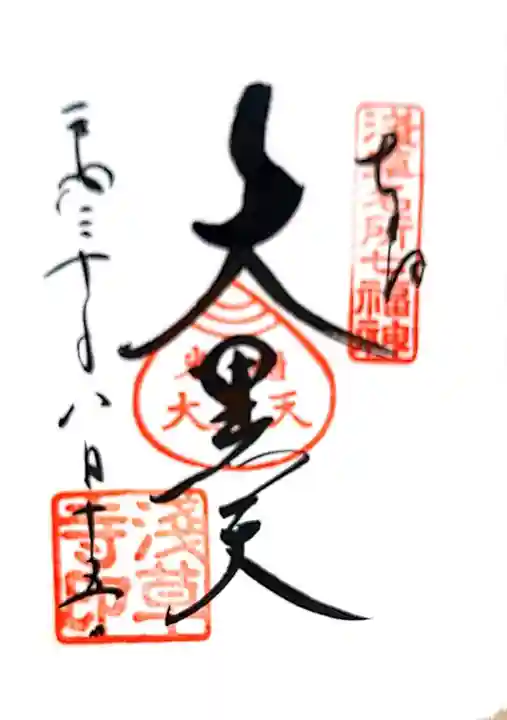 奉拝
浅草名所七福神
大黒天
平成三十年八月十五日
浅草寺印